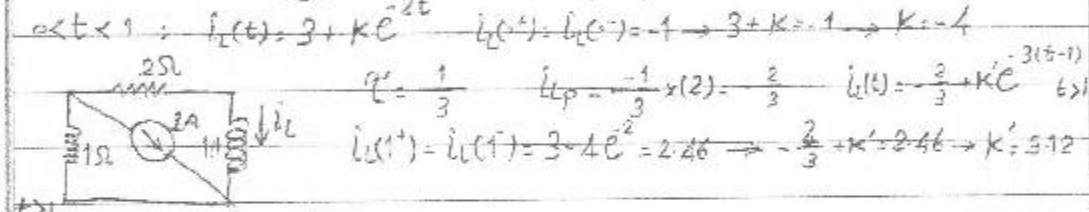 0<t<1 : i_L(t) = 3 + K e^{-2t}   i_L(0^+) = i_L(0^-) = -1 → 3 + K = -1 → K = -4
2Ω
τ' = 1/3   i_{Lp} = -1/3 x(2) = -2/3   i_L(t) = -2/3 + K' e^{-3(t-1)}   t>1
2A
1Ω   1H   ↓ i_L
i_L(1^+) = i_L(1^-) = 3 - 4e^{-2} = 2.46 → -2/3 + K' = 2.46 → K' = 3.12
t>1